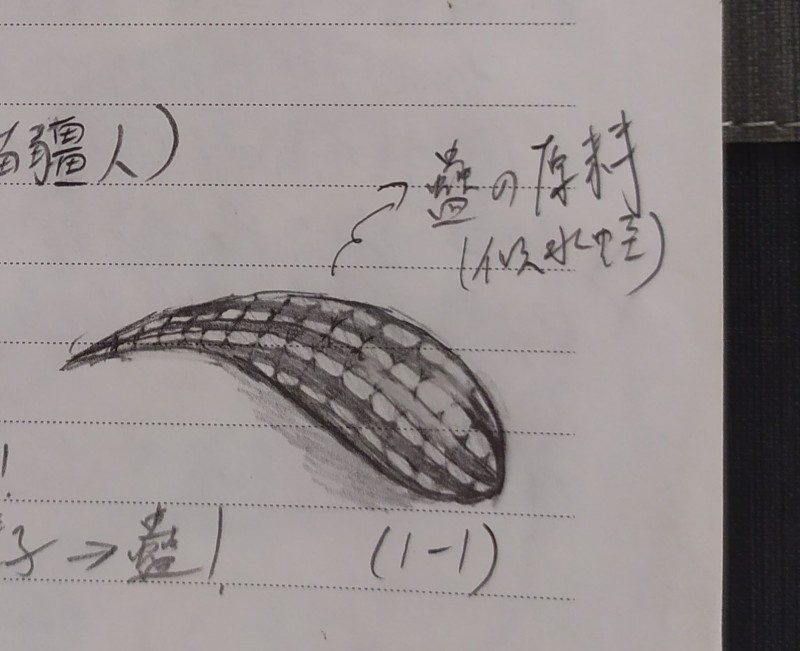 疆人)
蠱の原料
(似水蛭)
子→蠱
(1-1)